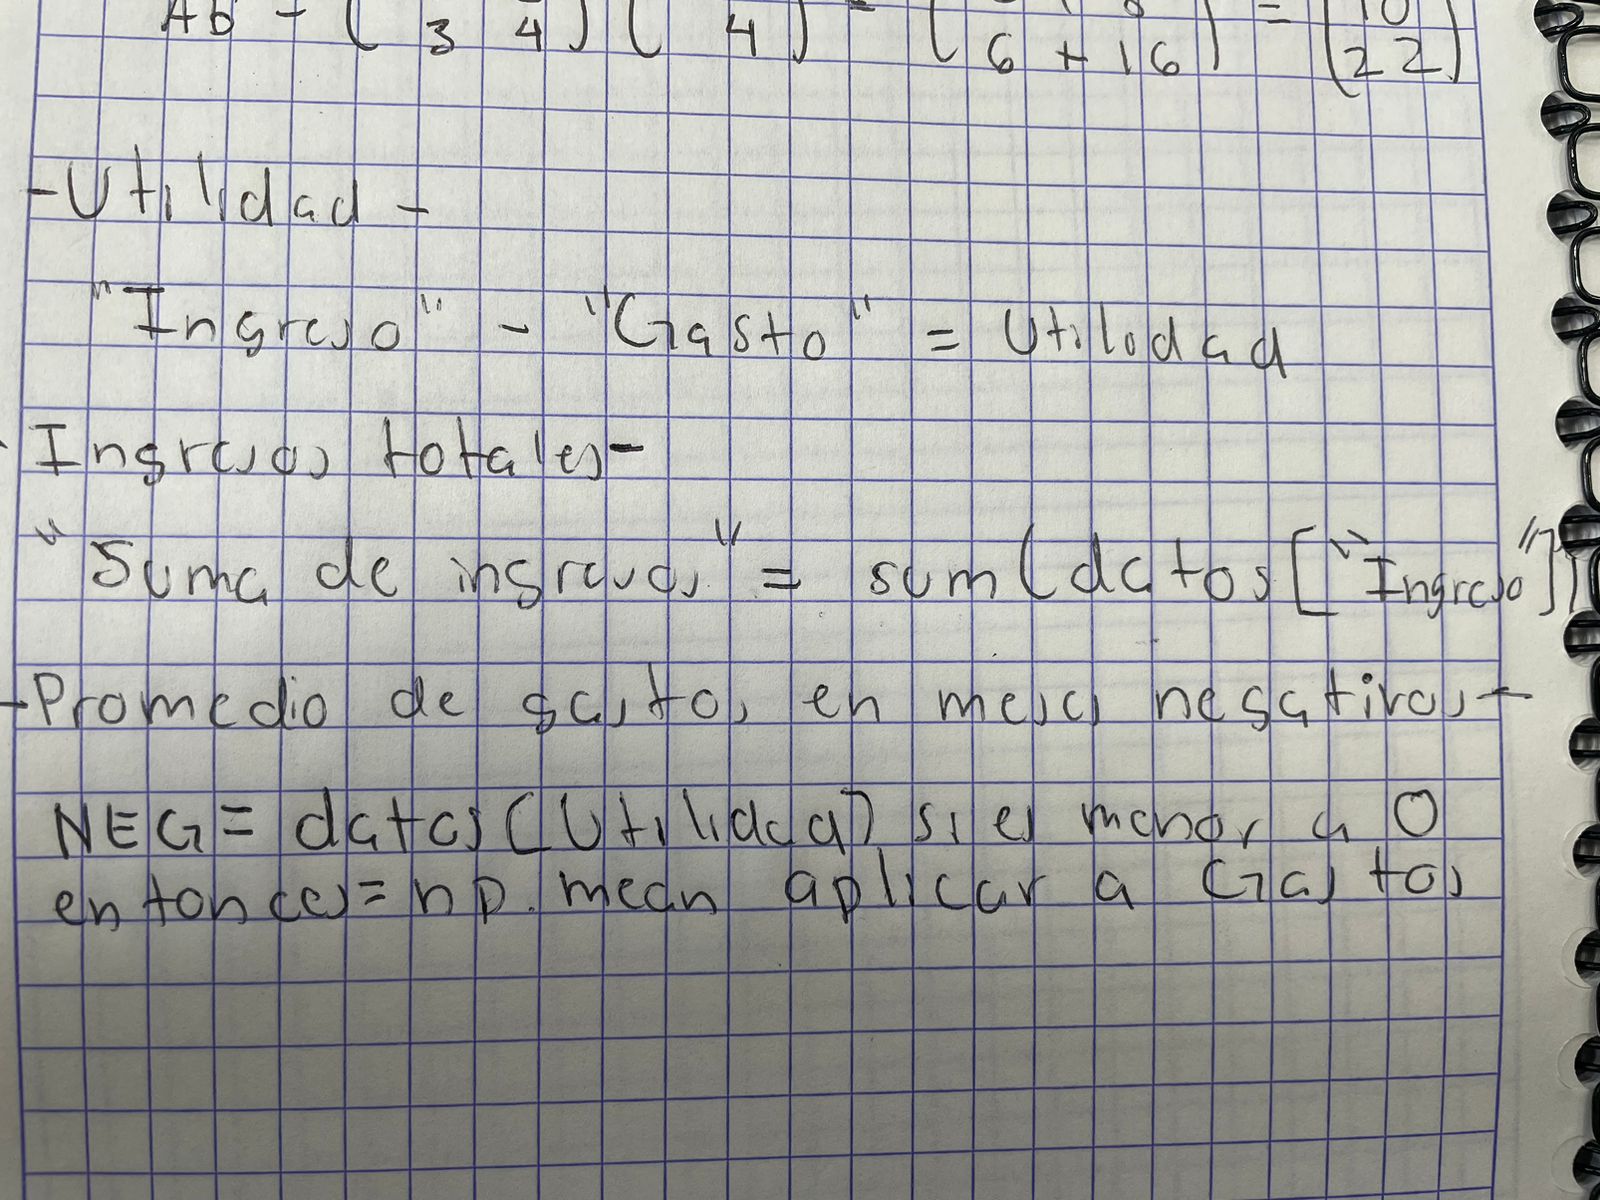 Ab = ( 3 4 ) ( 4 ) = ( 6 + 16 ) = ( 10
22 )
- Utilidad -
"Ingreso" - "Gasto" = Utilidad
Ingresos totales -
"Suma de ingresos" = sum(datos["Ingreso"])
- Promedio de gastos en meses negativos -
NEG = datos(Utilidad) si es menor a 0
entonces = np.mean aplicar a Gastos